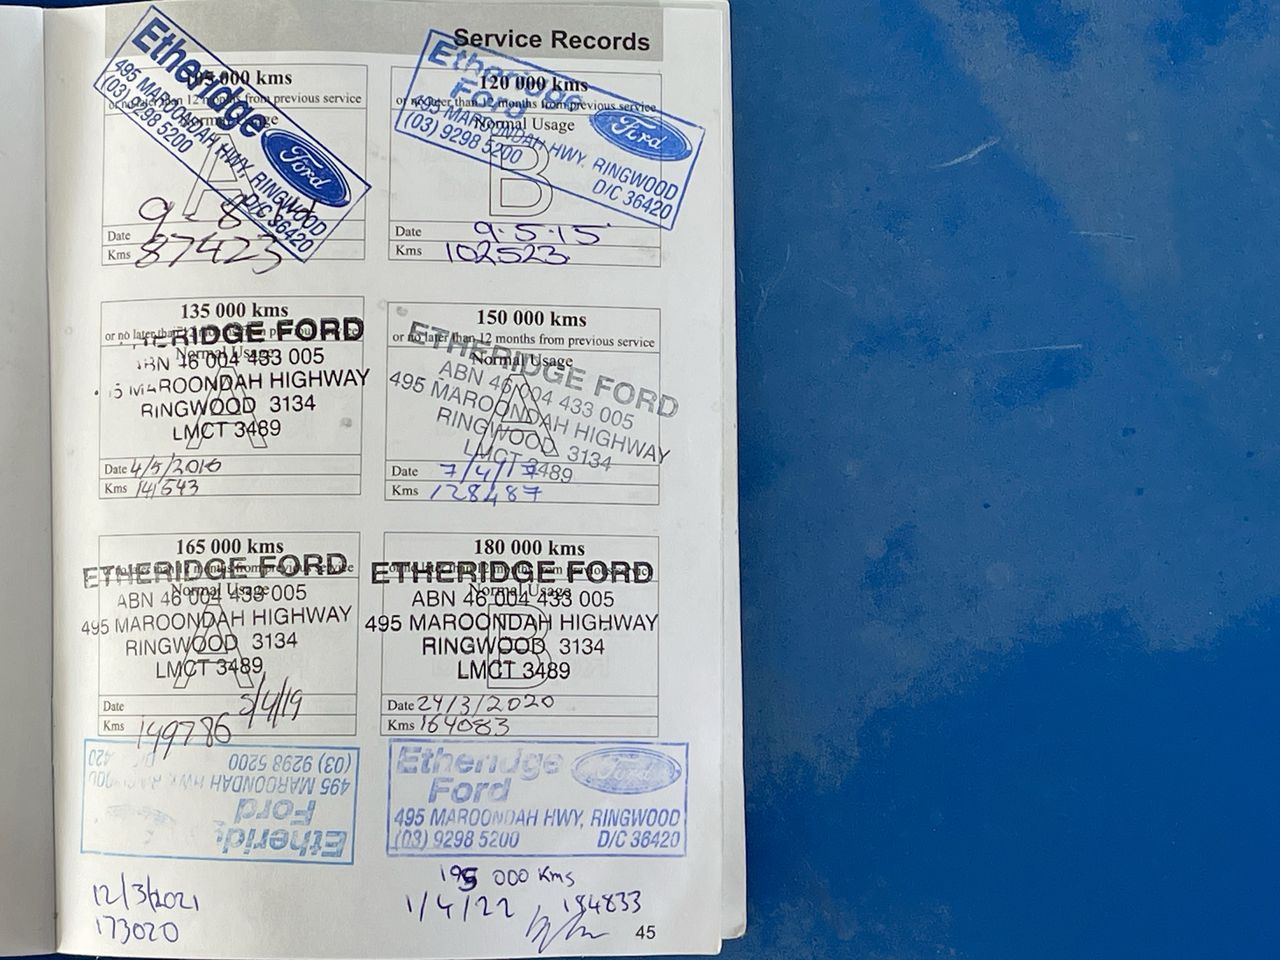 Service Records
105 000 kms
or no later than 12 months from previous service
Normal Usage
A
Etheridge
Ford
495 MAROONDAH HWY, RINGWOOD
(03) 9298 5200 D/C 36420
Date 9 - 8 -
Kms 87423
120 000 kms
or no later than 12 months from previous service
Normal Usage
B
Etheridge
Ford
Ford
495 MAROONDAH HWY, RINGWOOD
(03) 9298 5200 D/C 36420
Date 9.5.15
Kms 102523
135 000 kms
or no later than 12 months from previous service
Normal Usage
A
ETHERIDGE FORD
ABN 46 004 433 005
495 MAROONDAH HIGHWAY
RINGWOOD 3134
LMCT 3489
Date 4/5/2016
Kms 141543
150 000 kms
or no later than 12 months from previous service
Normal Usage
A
ETHERIDGE FORD
ABN 46 004 433 005
495 MAROONDAH HIGHWAY
RINGWOOD 3134
LMCT 3489
Date 7/4/17
Kms 128487
165 000 kms
or no later than 12 months from previous service
Normal Usage
A
ETHERIDGE FORD
ABN 46 004 433 005
495 MAROONDAH HIGHWAY
RINGWOOD 3134
LMCT 3489
Date 5/4/19
Kms 149786
180 000 kms
or no later than 12 months from previous service
Normal Usage
B
ETHERIDGE FORD
ABN 46 004 433 005
495 MAROONDAH HIGHWAY
RINGWOOD 3134
LMCT 3489
Date 24/3/2020
Kms 164083
Etherid
Ford
495 MAROONDAH HWY,
(03) 9298 5200 420
12/3/2021
173020
Etheridge
Ford
Ford
495 MAROONDAH HWY, RINGWOOD
(03) 9298 5200 D/C 36420
195 000 Kms
1/4/22 184833
45